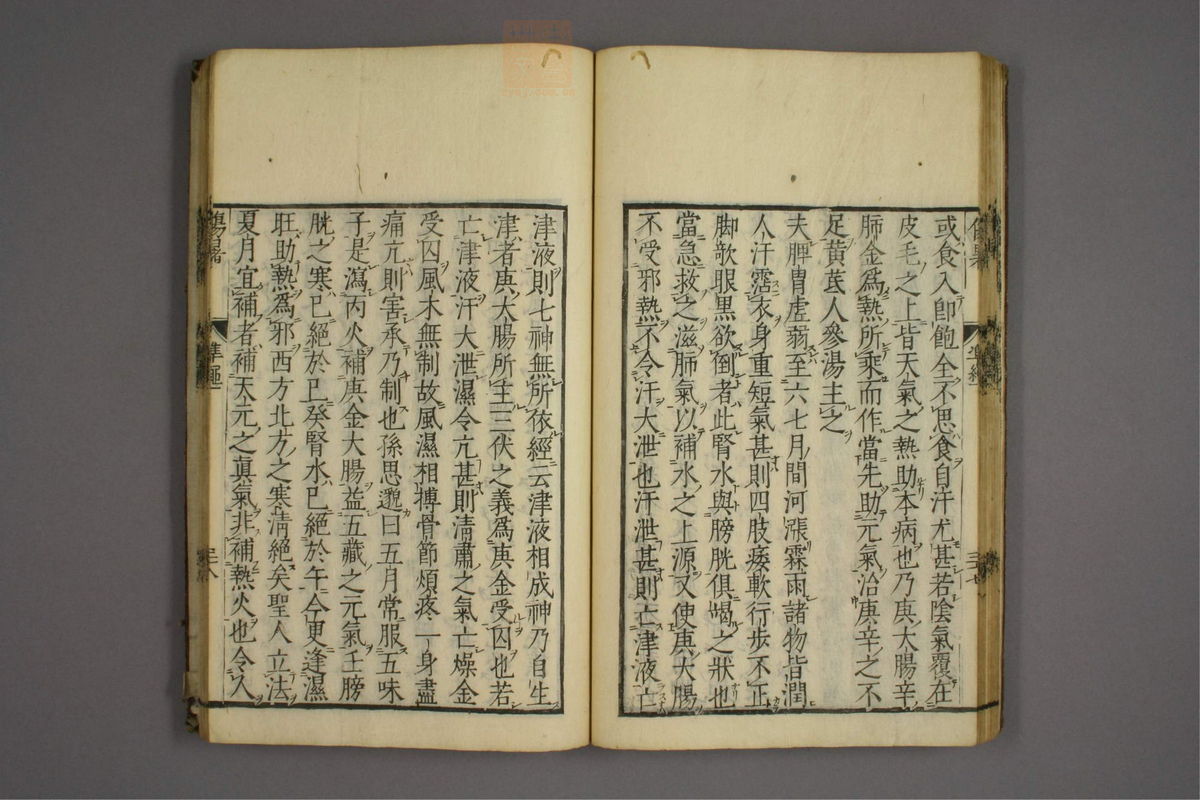 或食入即飽全不思食自汗尤甚若陰氣覆在
皮毛之上皆天氣之熱助本病也乃庚大腸辛
肺金爲熱所乘而作當先助元氣治庚辛之不
足黃芪人參湯主之
夫脾胃虛弱至六七月間河漲霖雨諸物皆潤
人汗霑衣身重短氣甚則四肢痿軟行步不正
脚欹眼黑欲倒者此腎水與膀胱俱竭之狀也
當急救之滋肺氣以補水之上源又使庚大腸
不受邪熱不令汗大泄也汗泄甚則亡津液亡
三十七
津液則七神無所依經云津液相成神乃自生
津者庚大腸所主三伏之義爲庚金受囚也若
亡津液汗大泄濕令亢甚則清肅之氣亡燥金
受囚風木無制故風濕相搏骨節煩疼一身盡
痛亢則害承乃制也孫思邈曰五月常服五味
子是瀉丙火補庚金大腸益五藏之元氣壬膀
胱之寒已絕於巳癸腎水已絕於午今更逢濕
旺助熱爲邪西方北方之寒清絕矣聖人立法
夏月宜補者補天元之眞氣非補熱火也令人
傷暑
準繩
三十八